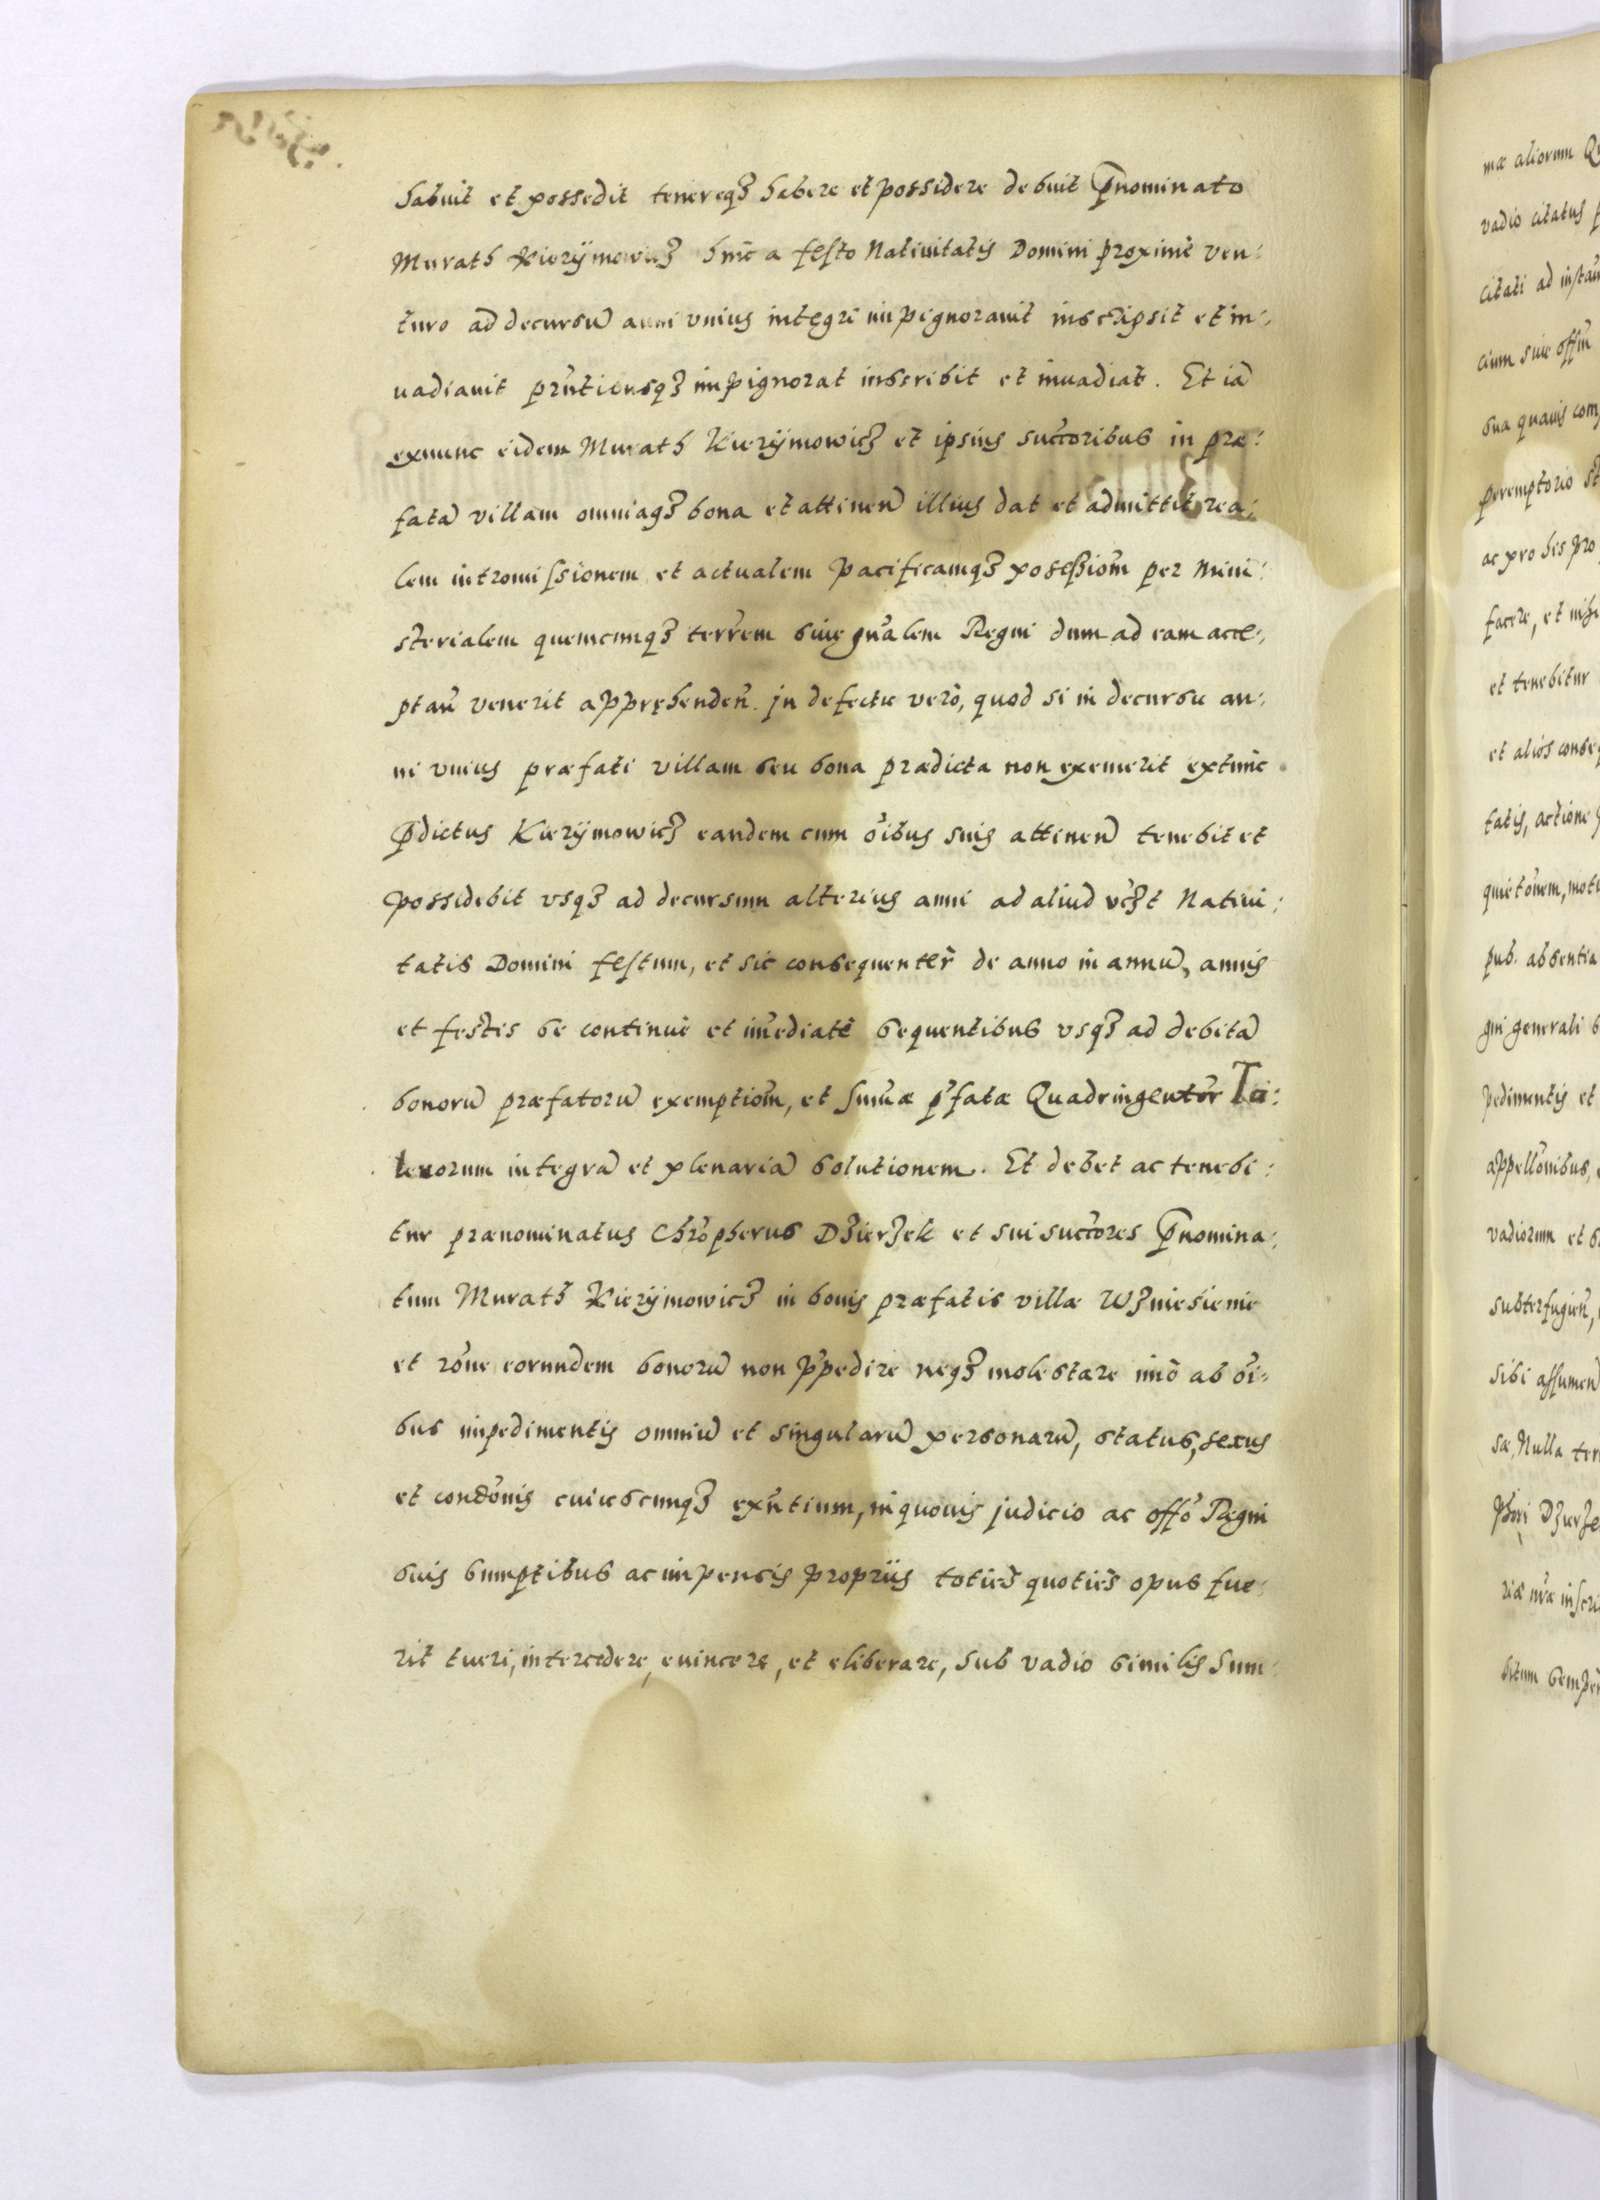 habuit et possedit tenereq3 habere et possidere debuit Pnominato
Murath Kierÿmowicz hinc a festo Natiuitatis Domini proximè ven:
turo ad decursũ anni vnius integri impignorauit inscripsit et in:
uadiauit prn̄tibusq3 impignorat inscribit et inuadiat. Et iã
exnunc eidem Murath Kierÿmowicz et ipsius succoribus in præ:
fatã villam omniaq3 bona et attinen̄ illius dat et admittit rea:
lem intromissionem et actualem pacificamq3 possessiom̄ per Mini:
sterialem quemcunq3 terrēm siue gnālem Regni dum ad eam acce:
ptan̄ venerit appręhenden̄. In defectu verò, quod si in decursu an:
ni vnius præfati villam seu bona prædicta non exemerit extunc
Pdictus Kierÿmowicz eandem cum oībus suis attinen̄ tenebit et
possidebit vsq3 ad decursum alterius anni ad aliud vcz̄t Natiui:
tatis Domini festum, et sic consequenter̀ de anno in annũ, annis
et festis se continuè et im̄ediatè sequentibus vsq3 ad debitã
bonorũ præfatorũ exemptiom̄, et sum̄æ p̄fatæ Quadringentor̄ Ta:
lerorum integrã et plenariã solutionem. Et debet ac tenebi:
tur prænominatus Chrōpherus Dzierzek et sui succōres Pnomina:
tum Murath Kierÿmowicz in bonis præfatis villæ Wzniesienie
et rōne eorundem bonorũ non p̄pedire neq3 molestare imò ab oī:
bus impedimentis omniũ et singularũ personarũ, status, sexus
et condōnis cuiuscunq3 exn̄tium, in quouis judicio ac offō Regni
suis sumptibus ac impensis proprÿs toties quoties opus fue:
rit tueri, intercedere, euincere, et eliberare, sub vadio similis Sum:
mæ aliorum
vadio citatus
citati ad
cium siue offm̄
sua quauis
peremptorio
ac pro his pro
facere, et
et tenebitur
et alios
tatis, actione
quietōnem,
pub. absentia
gni generali
pedimentis et
appellōnibus,
vadiorum et
subterfugien̄,
sibi assumen̄
sæ, Nulla
riæ nr̄æ
bitum